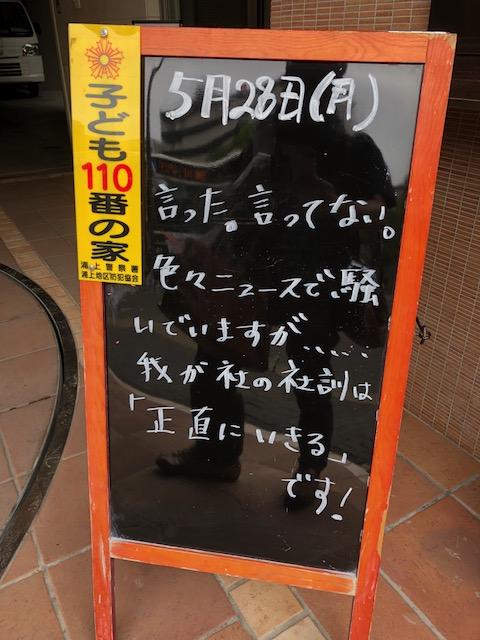 子ども
110
番の家
浦上警察署
浦上地区防犯協会
5月28日(月)
言った。言ってない。
色々ニュースで騒
いでいますが……
我が社の社訓は
「正直にいきる」
です!